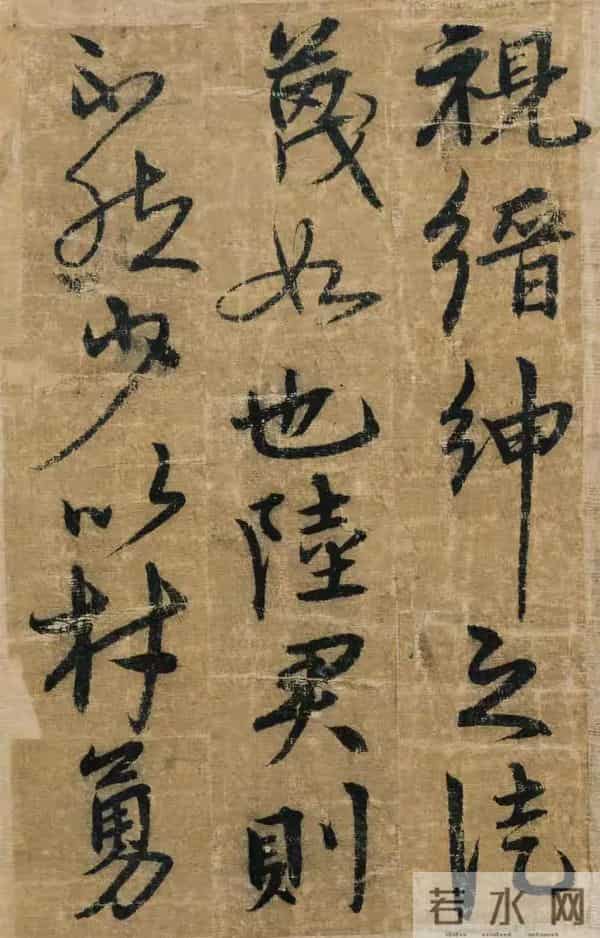 視縉紳之徒
蔑如也陸君則
不然少以材勇
若水网